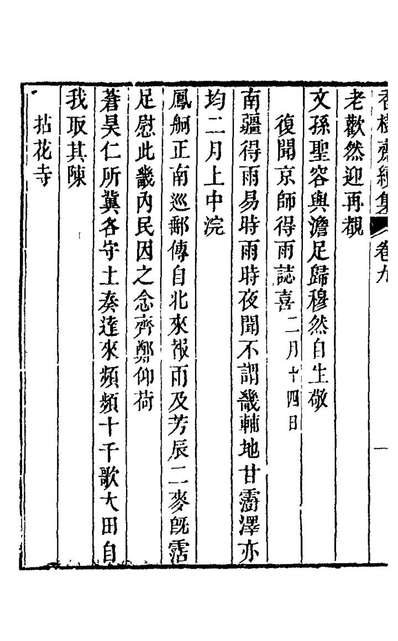 香樹齋續集 卷九 一
老歡然迎再覩
文孫聖容與澹足歸穆然自生敬
復聞京師得雨誌喜 二月十四日
南疆得雨易時雨時夜聞不謂畿輔地甘霑澤亦
均二月上中浣
鳳舸正南巡郵傳自北來報雨及芳辰二麥既霑
足慰此畿內民因之念齊鄭仰荷
蒼昊仁所冀各守土奏達來頻頻十千歌大田自
我取其陳
拈花寺